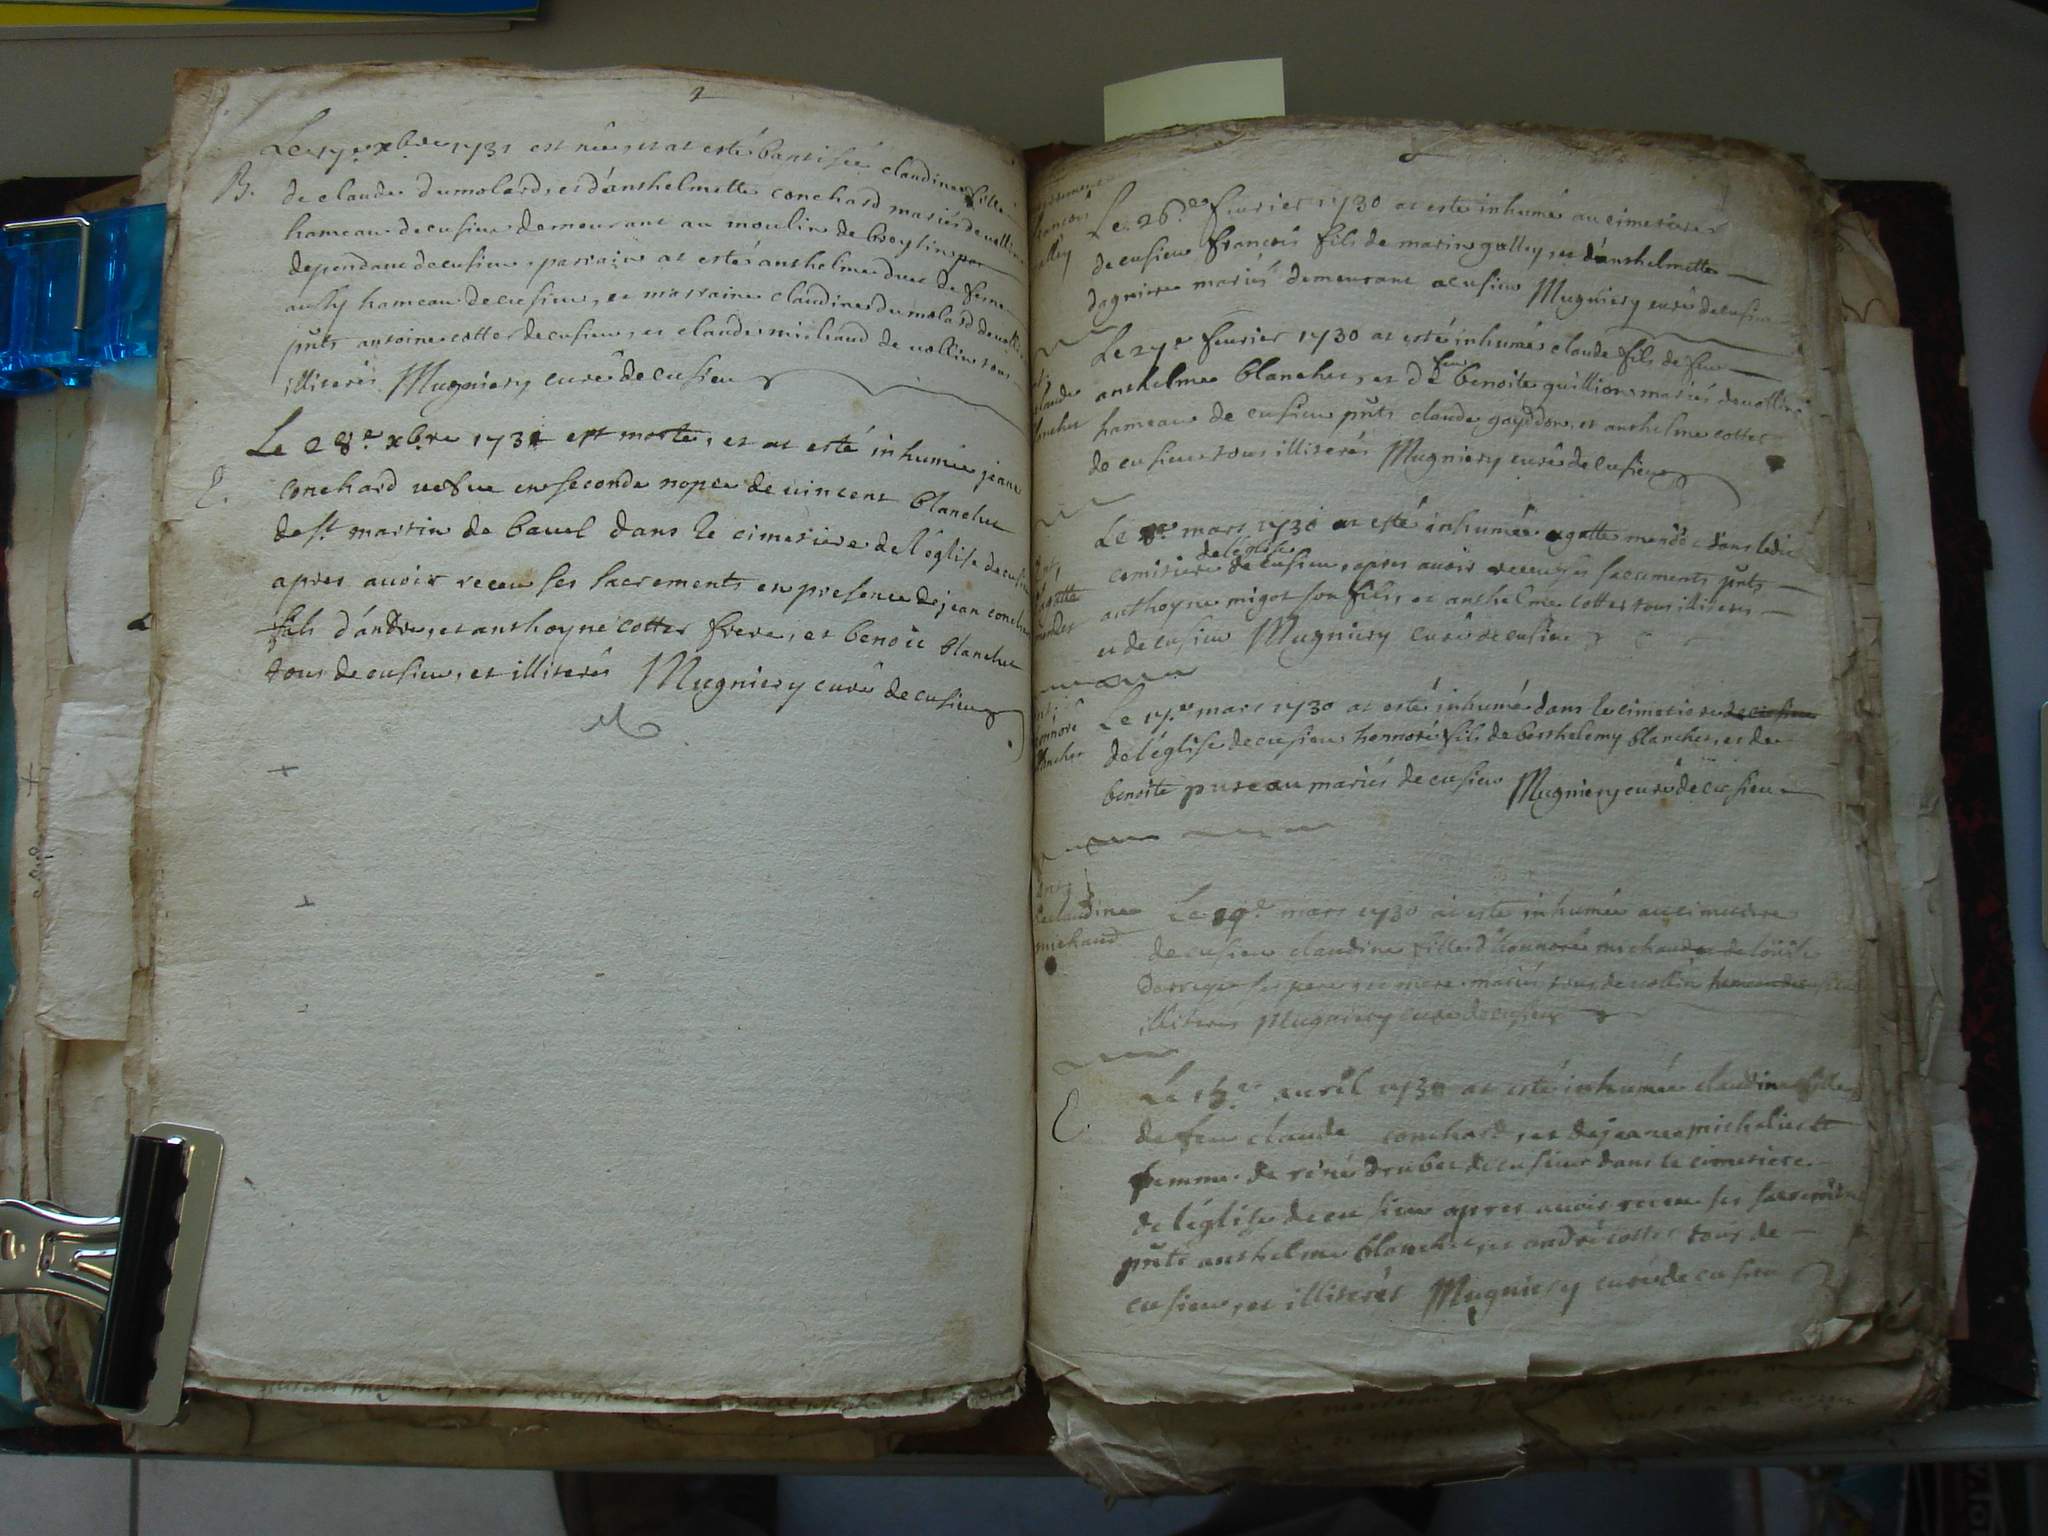 Le 17e xbre 1731 est née, et at esté baptisée claudine fille
B. de claude dumolard, et d'anthelmette conchard mariés de vollin
hameau de cusieu demeurant au moulin de
dependant de cusieu, parrain at esté anthelme druet de
aussy hameau de cusieu, et marraine claudine dumolard de vollin
pnts antoine cotter de cusieu, et claude michaud de vollin tous
illiterés Mugniery curé de cusieu
Le 28e xbre 1731 est morte, et at esté inhumée jeane
E. conchard vefve en seconde nopce de vincent blanchet
de st martin de bavel dans le cimetiere de l'église de cusieu
apres avoir receu ses sacrements en presence de jean
fils d'andre, et anthoyne cotter frere, et benoit blanchet
tous de cusieu, et illiterés Mugniery curé de cusieu
françois
Le 26e fevrier 1730 at esté inhumé au cimetiere
de cusieu françois fils de marin galley, et d'anthelmette
dagniere mariés demeurant a cusieu Mugniery curé de cusieu
Le 27e fevrier 1730 at esté inhumé claude fils de feu
claude
blanchet
anthelme blanchet, et de feue benoite quillion mariés de vollin
hameau de cusieu pnts claude gayddon, et anthelme cotter
de cusieu tous illiterés Mugniery curé de cusieu
Le mars 1730 at esté inhumée agatte dans ledit
de l'église
cimitiere de cusieu, apres avoir receu ses sacrements pnts
agatte
anthoyne migot son fils, et anthelme cotter tous illiterés
et de cusieu Mugniery curé de cusieu
Le 17e mars 1730 at esté inhumé dans le cimetiere de cusieu
honnoré
blanchet
de l'église de cusieu honnoré fils de berthelemy blanchet, et de
benoite pureau mariés de cusieu Mugniery curé de cusieu
claudine
michaud
Le 29e mars 1730 at esté inhumée au cimetiere
de cusieu claudine fille d'honnoré michaud et de louise
ses pere et mere mariés, tous de vollin hameau de cusieu
illiterés Mugniery curé de cusieu
Le avril 1730 at esté inhumée claudine fille
E. de feu claude conchard, et de jeane
femme de réné drubet de cusieu dans le cimetiere
de l'église de cusieu apres avoir receu ses sacrements
pnts anthelme blanchet, et andré cotter tous de
cusieu, et illiterés Mugniery curé de cusieu